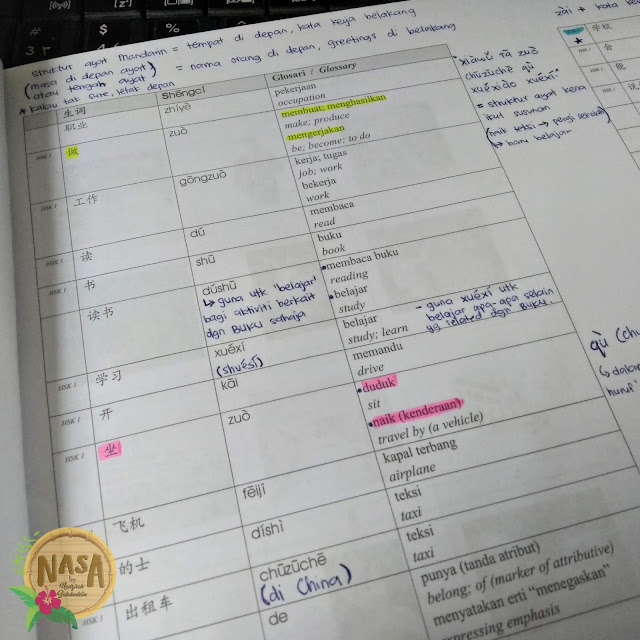 struktur ayat Mandarin = tempat di depan, kata kerja belakang
(masa di depan ayat) = nama orang di depan, greetings di belakang
(atau tengah ayat)
* kalau tak sure, letak depan
zài + kata
生词 Shēngcí Glosari / Glossary
职业 zhíyè pekerjaan
occupation
HSK 1 做 zuò membuat; menghasilkan
make; produce
mengerjakan
be; become; to do
HSK 1 工作 gōngzuò kerja; tugas
job; work
bekerja
work
HSK 1 读 dú membaca
read
HSK 1 书 shū buku
book
读书 dúshū membaca buku
reading
↳ guna utk 'belajar'
bagi aktiviti berkait
dgn BUKU sahaja
belajar
study
HSK 1 学习 xuéxí belajar
study; learn
(shuésí)
- guna xuéxí utk
belajar apa-apa selain
yg related dgn BUKU.
HSK 1 开 kāi memandu
drive
HSK 1 坐 zuò duduk
sit
naik (kenderaan)
travel by (a vehicle)
飞机 fēijī kapal terbang
airplane
的士 díshì teksi
taxi
HSK 1 出租车 chūzūchē teksi
taxi
(di China)
de punya (tanda atribut)
belong; of (marker of attributive)
menyatakan erti "menegaskan"
expressing emphasis
chūzūchē qù
xuéxiào xuéxí
= struktur ayat kena
ikut susunan
(naik teksi → pergi sekolah)
↳ baru belajar
学校
qù
NASA
by